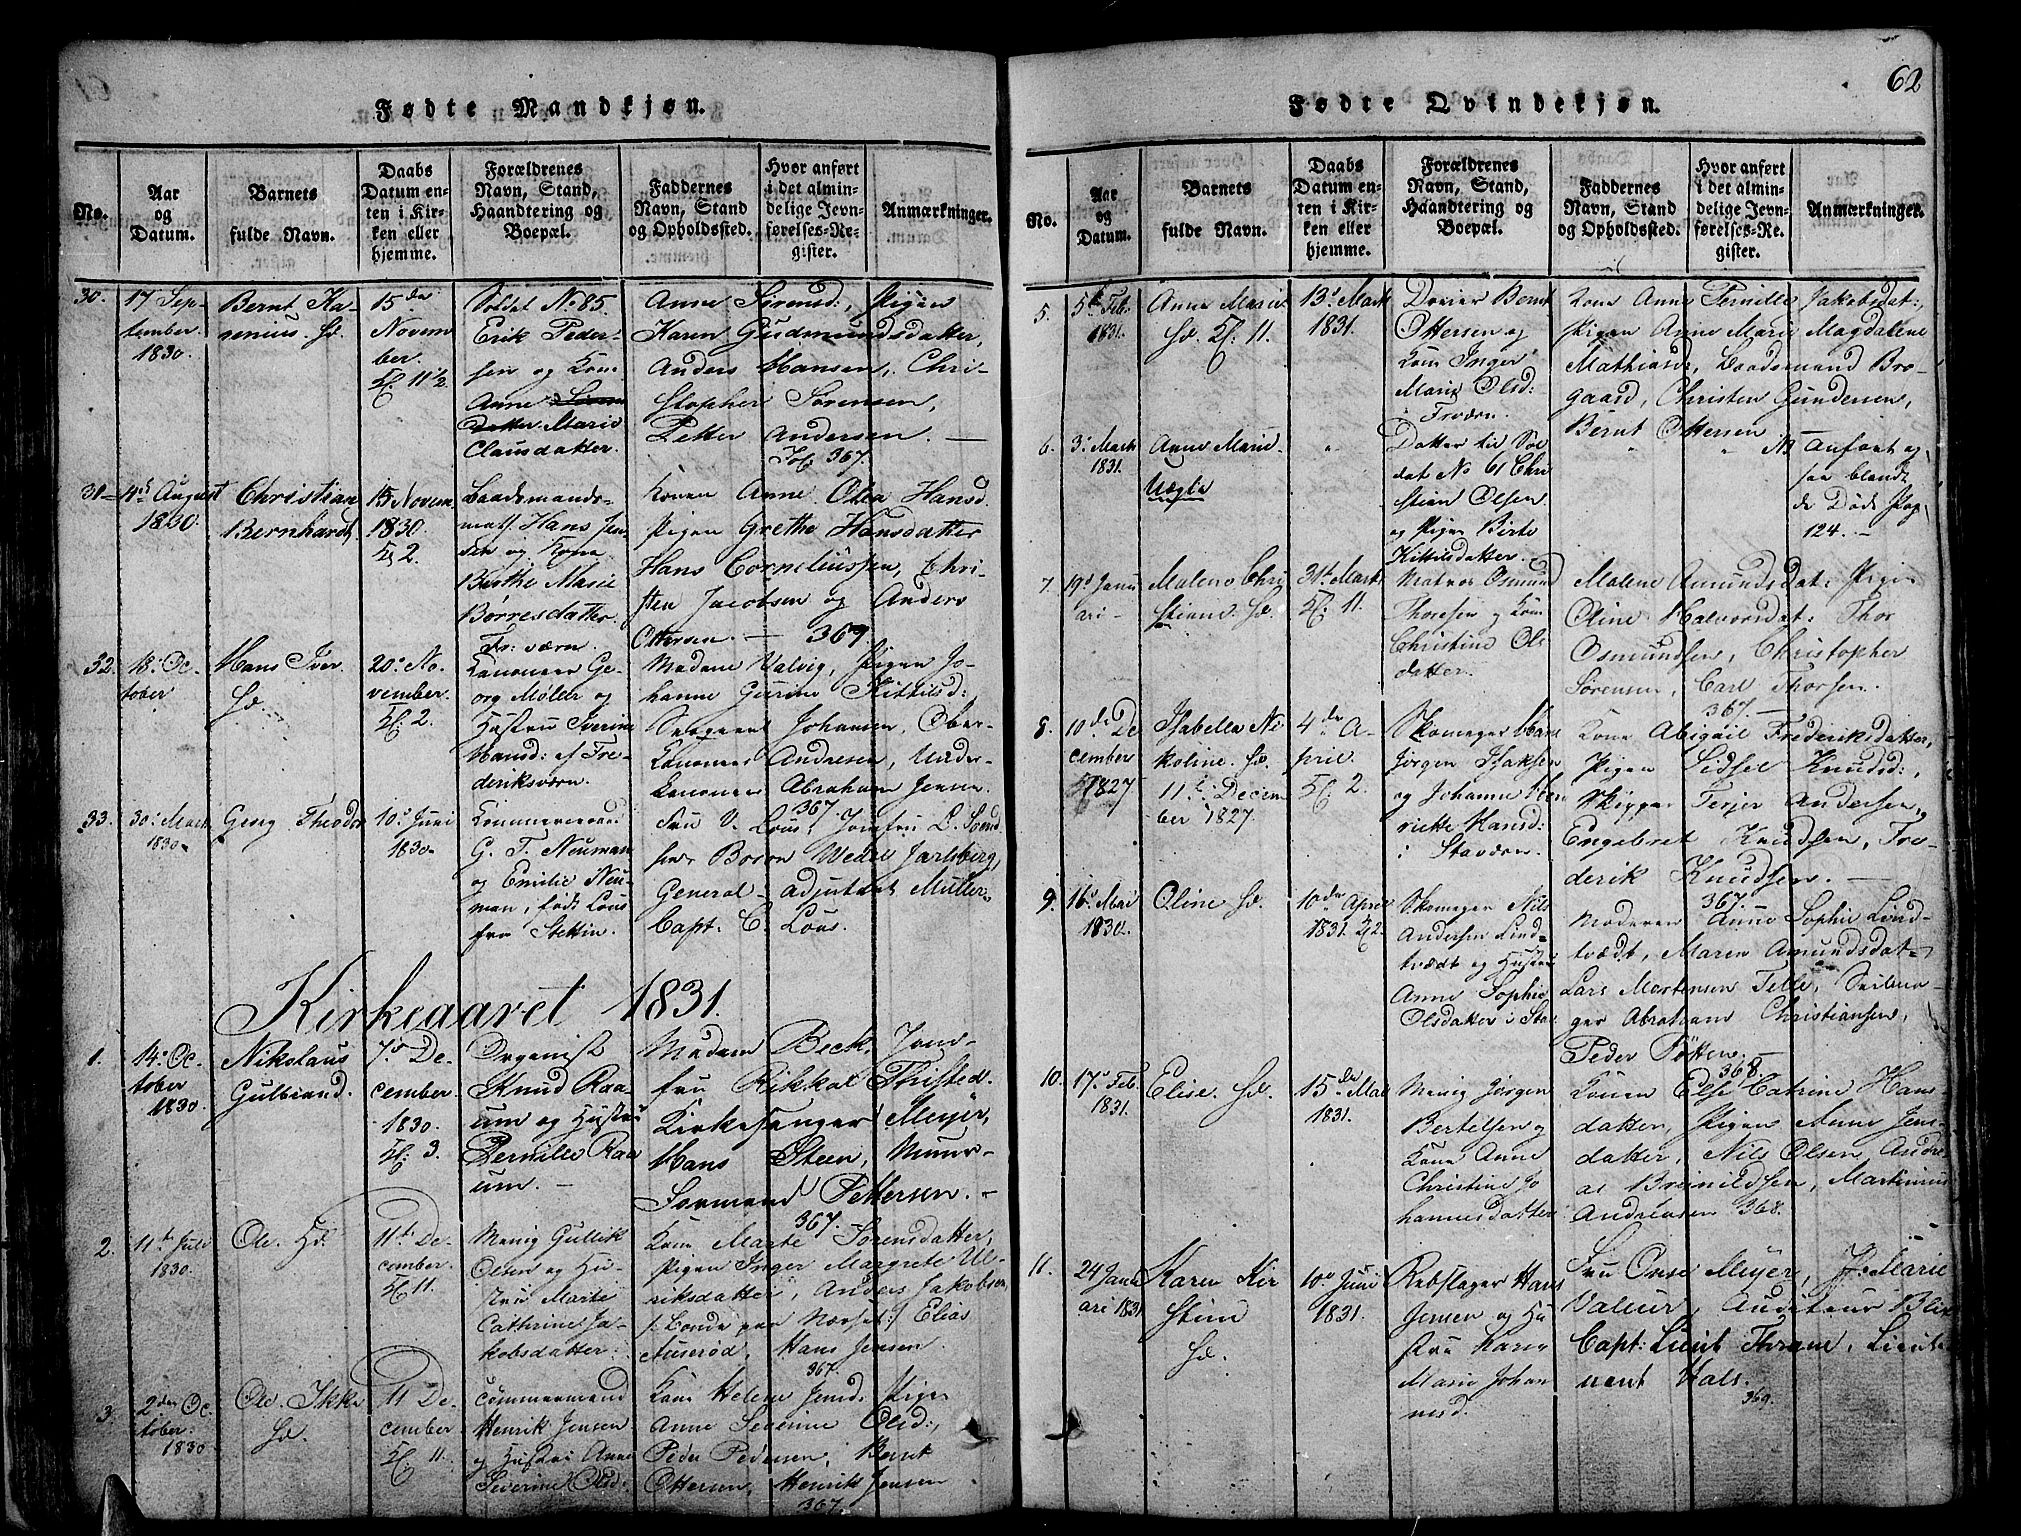 Fødte Mandkjøn.
No.
Aar
og
Datum.
Barnets
fulde Navn.
Daabs
Datum en-
ten i Kir-
ken eller
hjemme.
Forældrenes
Navn, Stand,
Haandtering og
Boepæl.
Faddernes
Navn, Stand
og Opholdssted.
Hvor anført
i det almin-
delige Jevn-
førelses-Re-
gister.
Anmærkninger.
30.
17 Sep-
tember
1830.
Bernt Ka-
15de
Novem
ber.
Kl. 11 1/2
Soldat No 85.
Erik Peder-
sen og Kone
Anne
Marie
Clausdatter.
Anne Sørensd:, Pigen
Karen Gudmundsdatter,
Anders Hansen, Chri-
stopher Sørensen,
Petter Andersen. —
Fol. 367.
31
4de August
1830.
Christian
Bernhardt,
15 Novem
1830.
Kl 2.
Baadsmands-
mat. Hans Jen
sen og Kone
Birthe Marie
Børresdatter
Fr: værn.
Konen Anne Olea Hansd.
Pigen Grethe Hansdatter
Hans Corneliussen, Chri-
sten Jacobsen og Anders
Ottersen. — 367
32.
18. Oc-
tober
Hans Iver.
Hd.
20. No-
vember.
Kl. 2.
Canoneer Ge-
org Møller og
Hustru Iverine
af Fre-
deriksværn.
Madame Valvig, Pigen Jo-
hanne Gurine Kittilsd:
Johansen, Ober-
Canoneer Andresen, Under-
Canoneer Abraham Jensen.
367
33.
30. Mart
1830.
Georg Theodor
10. Juni
1830.
Kommerceraad
G. T. Neuman
og Emilie Neu-
man, født Lous
fra Stettin.
Fru V. Lous, Jomfru L.
Baron Wedel Jarlsberg,
General-adjutant Müller,
Capt: C. Lous.
Kirkeaaret 1831.
1.
14. Oc-
tober
1830.
Nikolaus
Gulbrand.
7de De-
cember
1830.
Kl. 3.
Organist
Knud Raa-
um og Hustru
Pernille Raa
um. —
Madam Beck, Jom-
fru Rikka Thisted.
Kirkesanger Meyer,
Hans Steen, Muur-
Sormand Pettersen. —
367.
2.
11te Juli
1830.
Ole. Hd.
11te De-
cember.
Kl 11.
Menig Gullik
Olsen og Hu-
stru Marte
Cathrine Ja-
kobsdatter.
Kone Marte Sørensdatter,
Pigen Inger Margrete Ul-
riksdatter, Anders Jakobsen
Elias
Auserød, Hans Jensen
367.
3.
2den Oc
tober.
1830
Ole.
Hd.
11 De-
cember
Kl. 11.
Tømmermand
Henrik Jensen
og Hustru Anne
Severine Olsd:
Kone Helene Jensd: Pige
Anne Severine Olsd:,
Peder Pedersen, Bernt
Ottersen, Henrik Jensen
367
62
Fødte Qvindekjøn.
No.
Aar
og
Datum.
Barnets
fulde Navn.
Daabs
Datum en-
ten i Kir-
ken eller
hjemme.
Forældrenes
Navn, Stand,
Haandtering og
Boepæl.
Faddernes
Navn, Stand
og Opholdssted.
Hvor anført
i det almin-
delige Jevn-
førelses-Re-
gister.
Anmærkninger.
5.
5te Feb.
1831.
Anne Marie
Hd. Kl. 11.
13. Mart
1831.
Bernt
Ottersen og
Kone Inger
Marie Olsd:
i Frværn.
Kone Anne Pernille Jakobsdat:
Pigen Anne Marie Magdalene
Mathiasd:, Baadsmand Bro-
gaard, Christen Gundersen,
Bernt Ottersen
6.
3. Mart
1831.
Anne Marie.
Uægte
Datter til Sol
dat No 61 Chri
stian Olsen
og Pigen Birte
Kittilsdatter.
Anført og-
saa blandt
de Døde Pag
124. —
7.
19. Janu
ari —
Malene Chri
stine. Hd.
31te Mart
Kl. 11.
Matros Osmund
Thorsen og Kone
Christine Ols
datter.
Malene Amundsdat: Pigen
Oline Halvorsdat: Thor
Osmundsen, Christopher
Sørensen, Carl Thorsen.
367. —
8.
10de De
cember
1827
Isabella Ni-
koline. Hd.
11te Decem
ber 1827.
4de A-
pril.
Kl. 2.
Skomager
Jørgen Isaksen
og Johanne Hen
riette Hansd:
i Staværn.
Kone Abigail Frederiksdatter,
Pigen Sidsel Knudsd:,
Skipper Terjer Andersen,
Engebret Knudsen, Fre-
derik Knudsen. —
367.
9.
16. Mai
1830.
Oline Hd.
10de April
1831. Kl 2.
Skomager Nils
Andersen Lind-
tvædt og Hustru
Anne Sophie
Olsdatter i Sta.
Moderen Anne Sophie Lind-
tvædt, Maren Amundsdat-
Lars Mortensen Telle, Seilma-
ger Abraham Christiansen,
Peder —
368.
10.
17. Feb.
1831.
Elise. Hd.
15de Mai
1831.
Menig Jørgen
Bertelsen og
Kone Anne
Christine Jo
hannesdatter
Konen Else Catrine Hans
datter, Pigen Anne Jens-
datter, Nils Olsen, Andre
as Brynildsen, Martinius
Andreasen 368.
11.
24 Janu
ari 1831
Karen Kir
stine
Hd.
10. Juni
1831.
Rebslager Hans
Jensen og Hu
stru Karen
Marie Johan
nesd.
Fru Onse Meyer, Marie
Valeur, Auditeur Blix
Capt: Lieut Thrane, Lieute
nant Hals.
369.